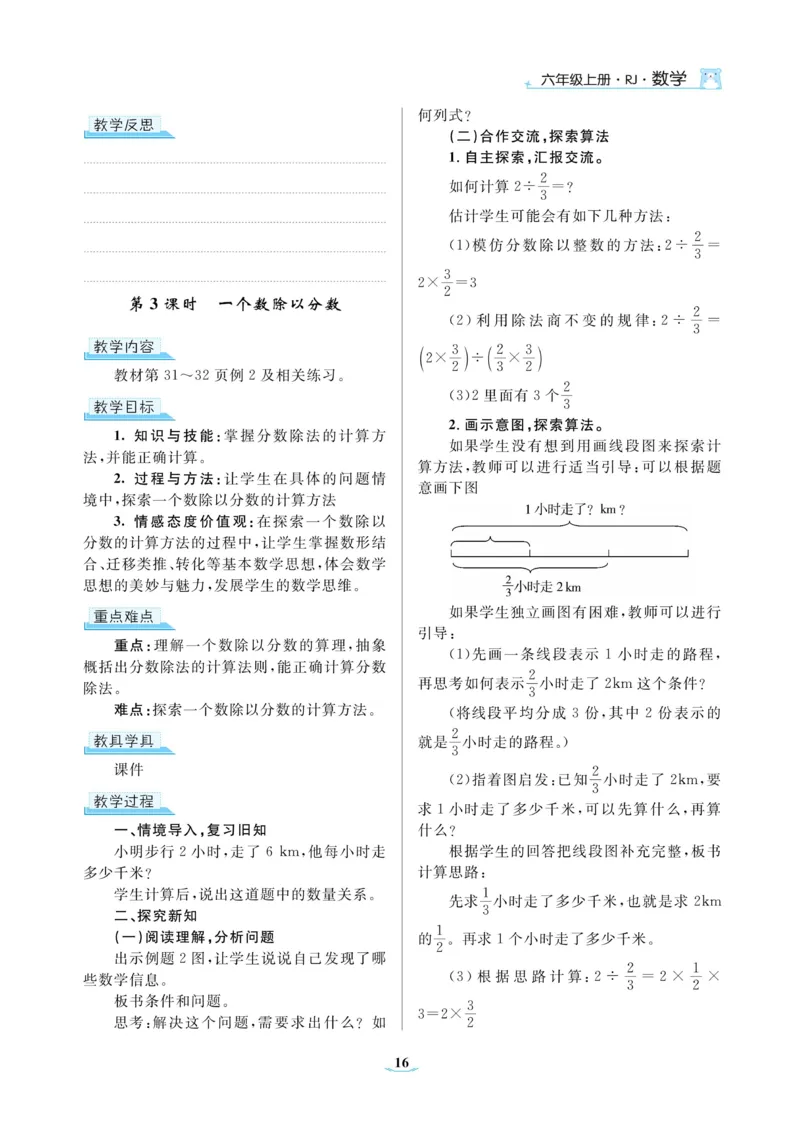 六年级上册·RJ·数学
教学反思
第3课时 一个数除以分数
教学内容
教材第31～32页例2及相关练习。
教学目标
1. 知识与技能:掌握分数除法的计算方
法,并能正确计算。
2. 过程与方法:让学生在具体的问题情
境中,探索一个数除以分数的计算方法
3. 情感态度价值观:在探索一个数除以
分数的计算方法的过程中,让学生掌握数形结
合、迁移类推、转化等基本数学思想,体会数学
思想的美妙与魅力,发展学生的数学思维。
重点难点
重点:理解一个数除以分数的算理,抽象
概括出分数除法的计算法则,能正确计算分数
除法。
难点:探索一个数除以分数的计算方法。
教具学具
课件
教学过程
一、情境导入,复习旧知
小明步行2小时,走了6 km,他每小时走
多少千米?
学生计算后,说出这道题中的数量关系。
二、探究新知
(一)阅读理解,分析问题
出示例题2图,让学生说说自己发现了哪
些数学信息。
板书条件和问题。
思考:解决这个问题,需要求出什么? 如
何列式?
(二)合作交流,探索算法
1. 自主探索,汇报交流。
如何计算 2÷2/3=?
估计学生可能会有如下几种方法:
(1)模仿分数除以整数的方法:2÷2/3=
2×3/2=3
(2)利用除法商不变的规律:2÷2/3=
(2×3/2)÷(2/3×3/2)
(3)2里面有3个2/3
2. 画示意图,探索算法。
如果学生没有想到用画线段图来探索计
算方法,教师可以进行适当引导:可以根据题
意画下图
1小时走了? km?
2/3小时走2km
如果学生独立画图有困难,教师可以进行
引导:
(1)先画一条线段表示1小时走的路程,
再思考如何表示2/3小时走了2km这个条件?
(将线段平均分成3份,其中2份表示的
就是2/3小时走的路程。)
(2)指着图启发:已知2/3小时走了2km,要
求1小时走了多少千米,可以先算什么,再算
什么?
根据学生的回答把线段图补充完整,板书
计算思路:
先求1/3小时走了多少千米,也就是求2km
的1/2。再求1个小时走了多少千米。
(3)根据思路计算:2÷2/3=2×1/2×
3=2×3/2
16